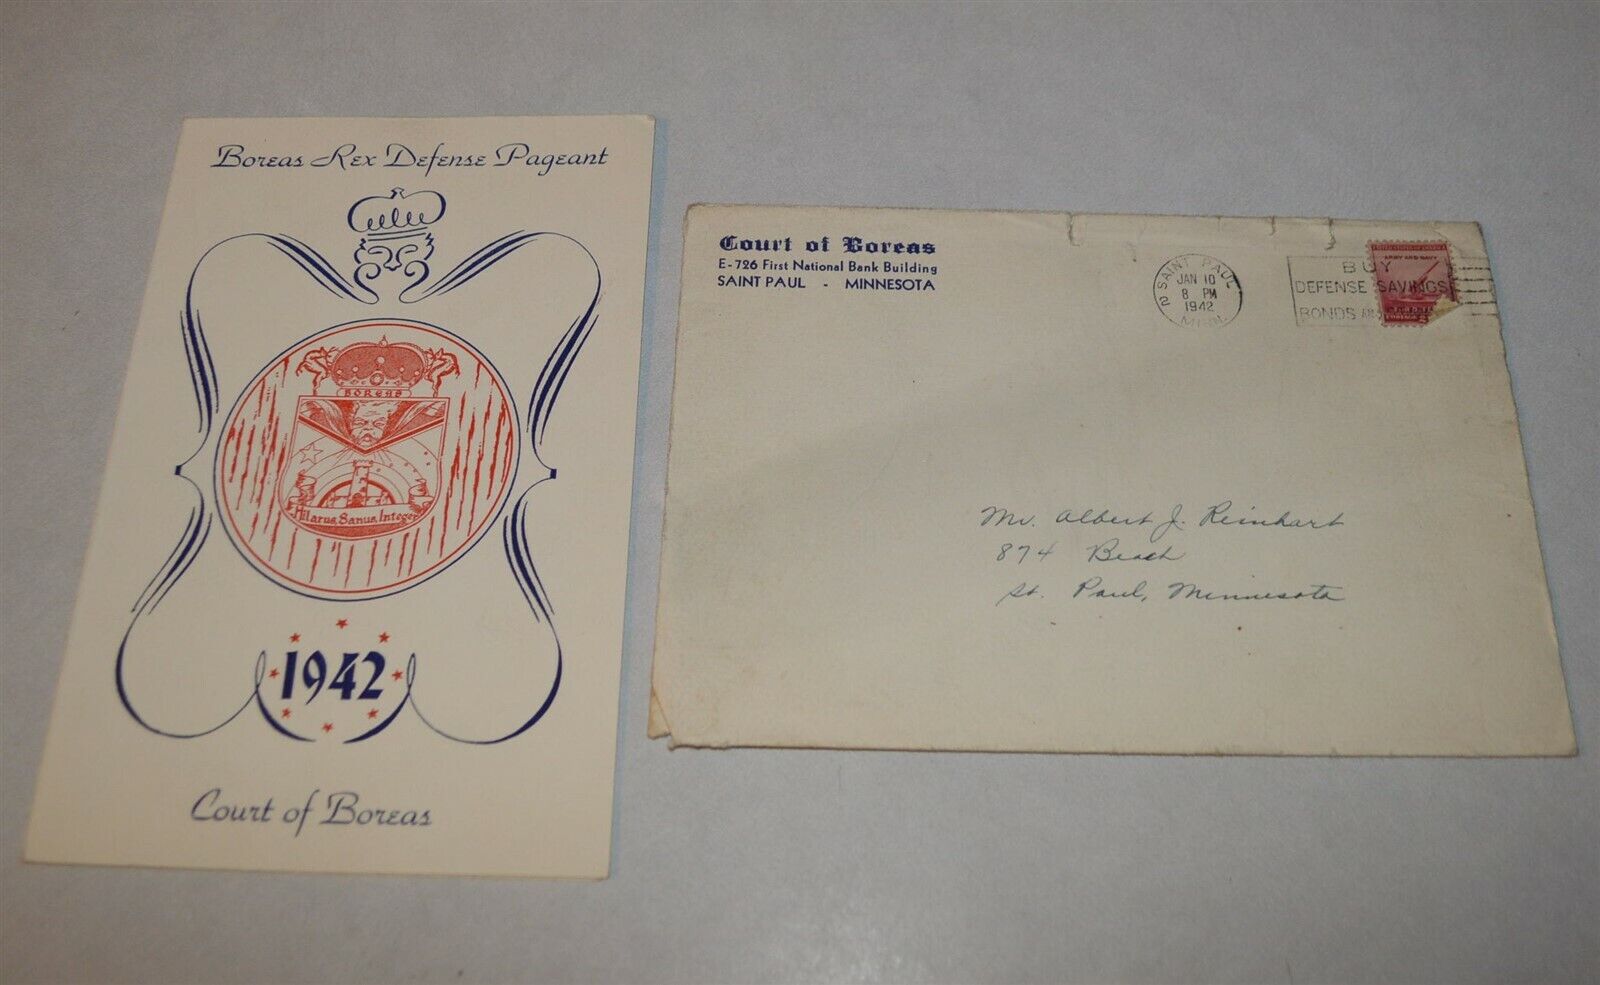 Boreas Rex Defense Pageant
BOREAS
Hilarus, Sanus, Integer
1942
Court of Boreas
Court of Boreas
E-726 First National Bank Building
SAINT PAUL - MINNESOTA
SAINT PAUL
2
JAN 10
8 PM
1942
MINN.
BUY
DEFENSE SAVINGS
BONDS AND
UNITED STATES OF AMERICA
ARMY AND NAVY
POSTAGE 2
Mr. Albert J. Reinhart
874 Beach
St. Paul, Minnesota